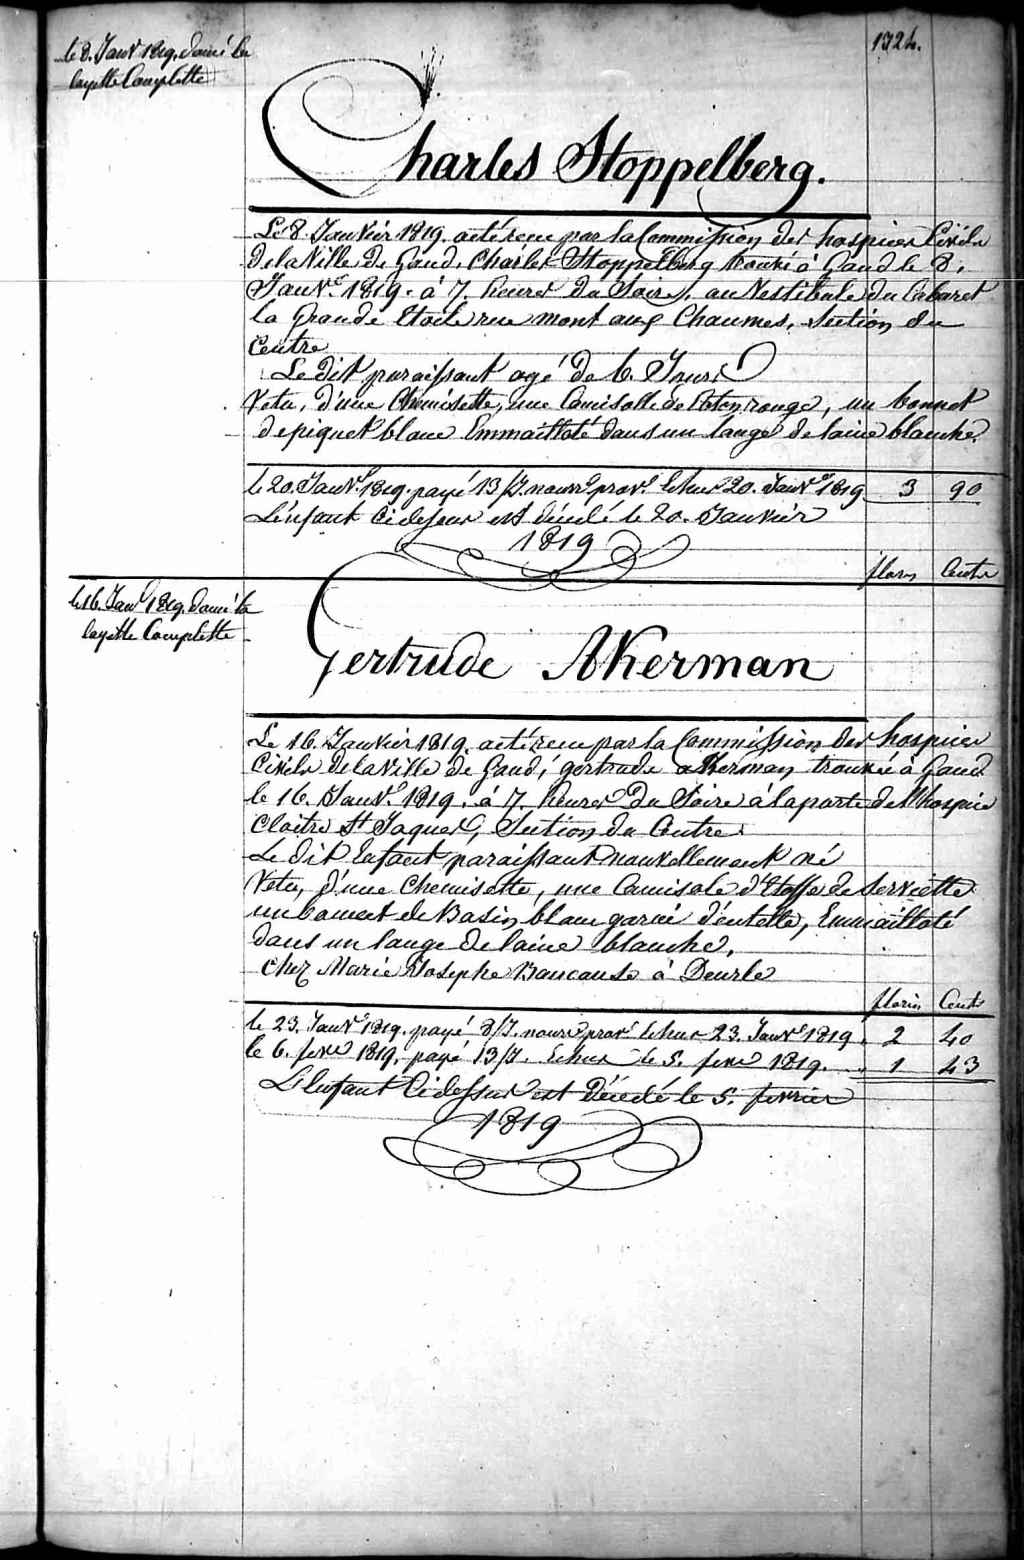 1324.
le 8. Janvr 1819. donné la
layette Complette
Charles Stoppelberg.
Le 8. Janvier 1819. acte reçu par la Commission des hospices Civils
de la Ville de Gand, Charles Stoppelberg trouvé à Gand le 8.
Janvr. 1819. à 7. heures du Soire, au Vestibule du Cabaret
la Grande Etoile rue mont aux Chaumes, Section du
Centre
Le dit paraissant agé de 6. Jours
Vetu, d'une Chemisette, une Camisolle de Coton rouge, un bonnet
de piquet blanc Emmailloté dans un lange de laine blanche.
le 20. Janvr. 1819. payé 13/J. nourre provre. Echue 20. Janvr. 1819 3 90
L'enfant Cidessus est décédé le 20. Janvier
1819
florins Cents
le 16. Janvr 1819. donné la
layette Complette
Gertrude AKerman
Le 16. Janvier 1819. acte reçu par la Commission des hospices
Civils de la Ville de Gand, gertrude aKerman trouvée à Gand
le 16. Janvr. 1819. à 7. heures du Soire à la porte de l'hospice
Cloitre St Jaques, Section du Centre.
Le dit Enfant paraissant nouvellement né
Vetu, d'une Chemisette, une Camisole d'Etoffe de Serviette
un bonnet de Basin blanc garnie d'entelle, Emmailloté
dans un lange de laine blanche,
chez Marie Josephe Bancause à Deurle
florins Cents
le 23. Janvr. 1819. payé 8/J. nourre provre Echue 23. Janvr. 1819. 2 40
le 6. fevre 1819, payé 13/J. Echue le 5. fevre 1819. 1 43
L'Enfant Cidessus est Décédé le 5. fevrier
1819